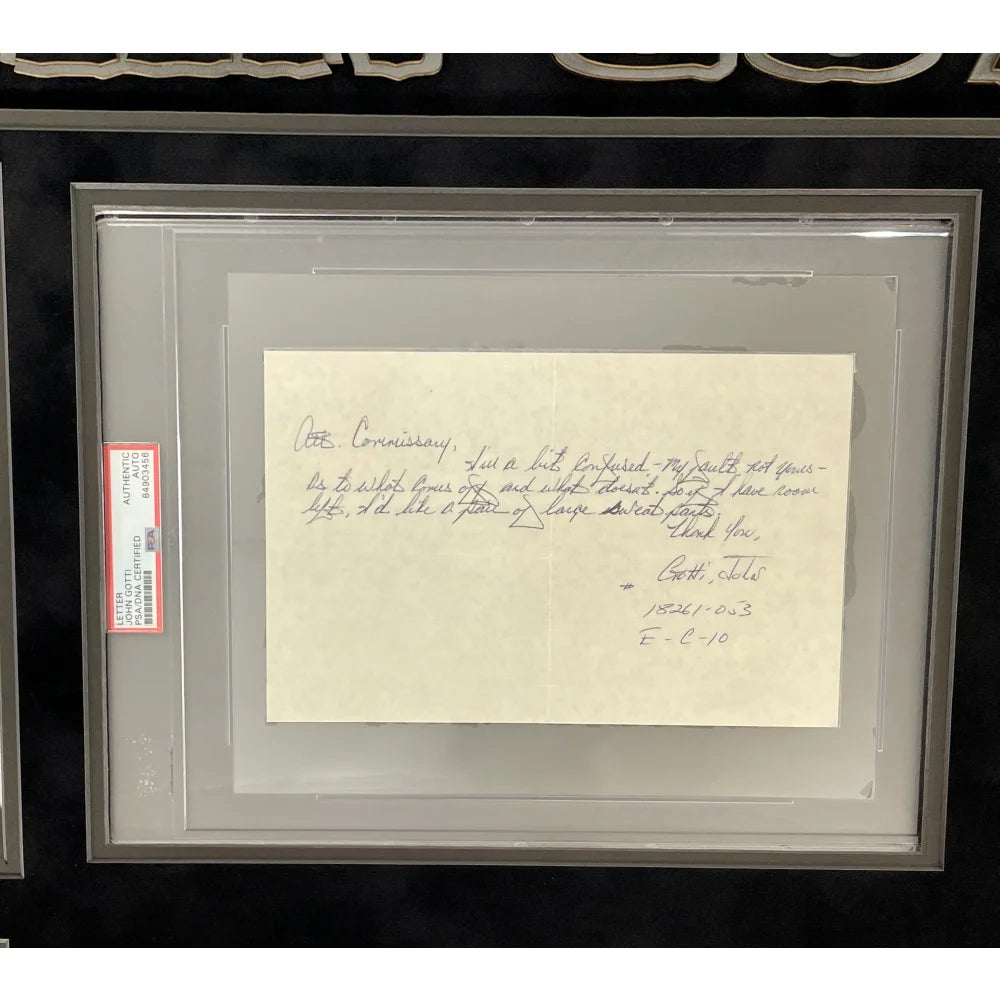 LETTER
JOHN GOTTI
PSA/DNA CERTIFIED
AUTHENTIC
AUTO
84903456
PSA
Att. Commissary,
I'm a bit confused - my fault, not yours -
as to what comes off and what doesn't. So if I have room
left, I'd like a pair of large sweat pants.
Thank You,
Gotti, John
# 18261-053
E - C - 10